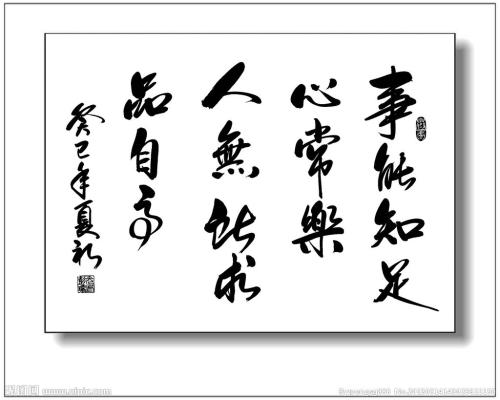 事能知足
心常樂
人無所求
品自高
癸巳年夏初
昵图网 www.nipic.com